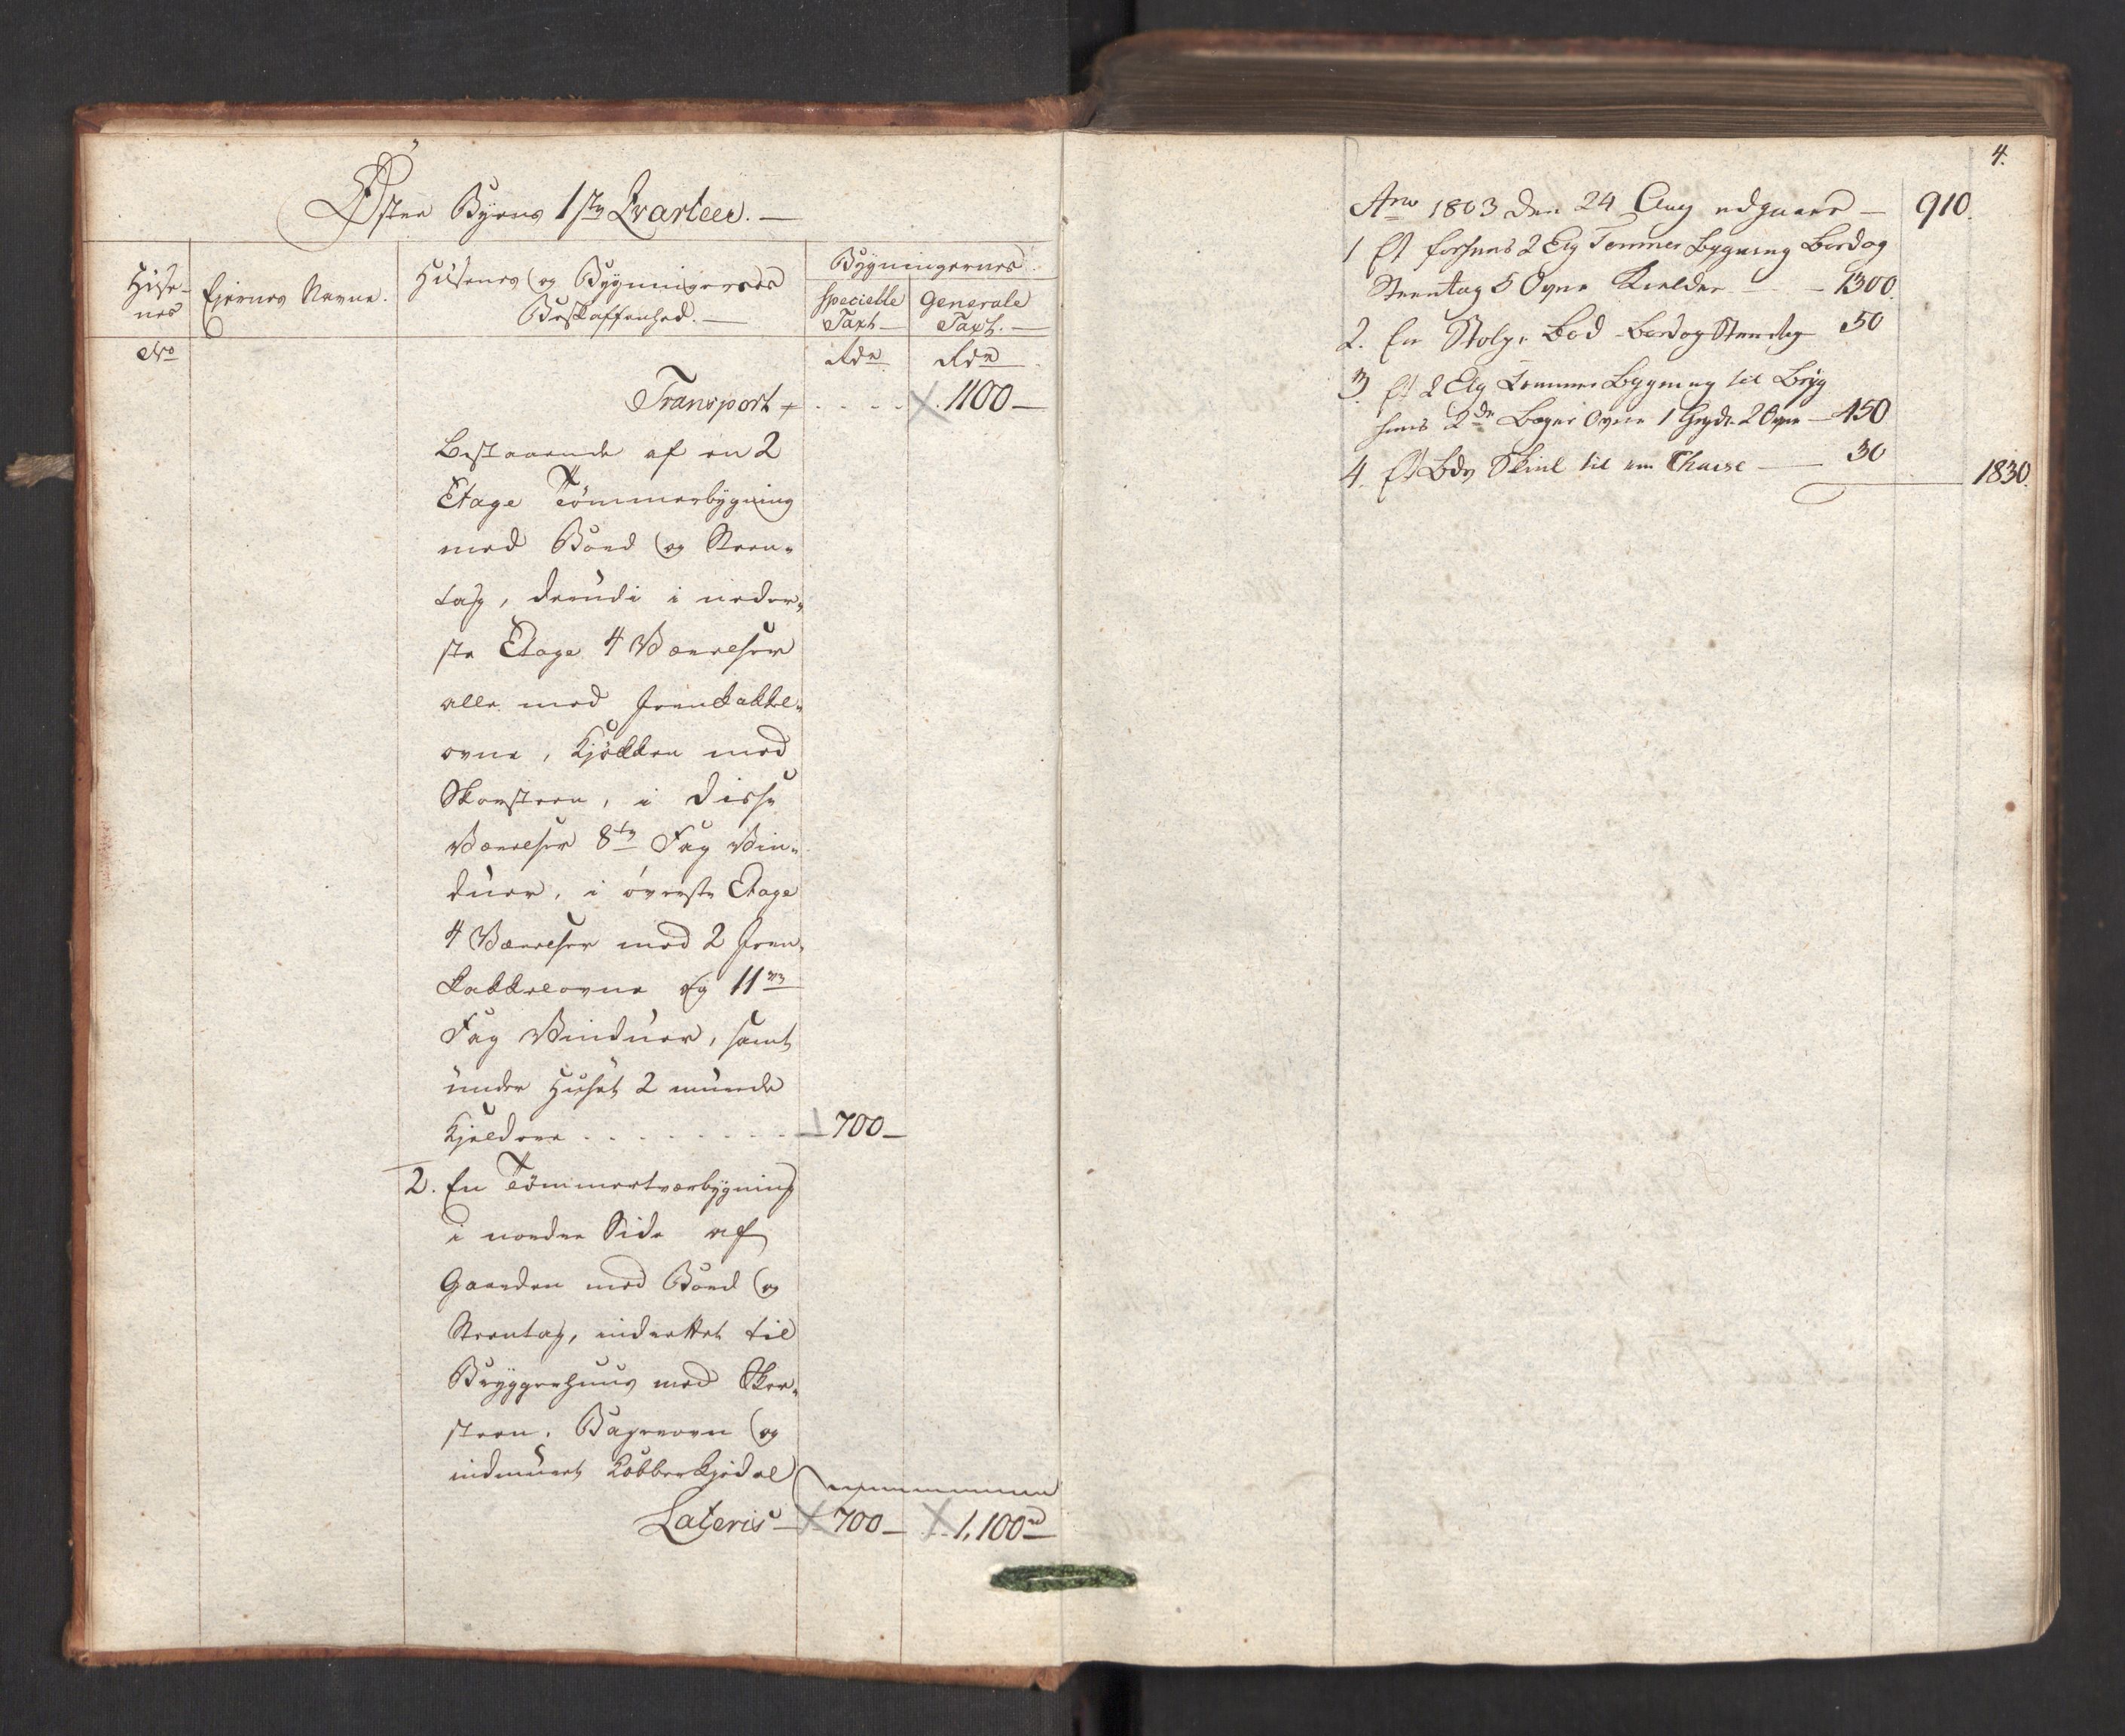 Øster Byens 1ste Qvarteer. —
Huse-
nes
Eiernes Navne.
Husenes og Bygningernes
Beskaffenhed. —
Bygningernes
specielle
Taxt —
Generale
Taxt. —
No
Rdr
Rdr
Transport . . . . 1100 —
Bestaaende af en 2
Etage Tömmerbygning
med Bord og Steen-
tag, derudi i neder-
ste Etage 4 Værelser
alle med Jernkakkel-
ovne, Kjökken med
Skorsteen, i disse
Værelser 8te Fag Vin-
duer, i överste Etage
4 Værelser med 2 Jern-
kakkelovne og 11ve
Fag Vinduer, samt
under Huset 2 murede
Kjeldere . . . . . . . . 700 —
2. En Tömmertværbygning
i nordre Side af
Gaarden med Bord og
Steentag, indrettet til
Bryggerhuus med Skor-
steen, Bagerovn og
indmuret Kobberkjedel
Lateris — 700 — 1,100
4.
Ano 1803 den 24 Aug udgaaer — 910.
1 Et forhuus 2 Etg Tømmer bygning Bord og
Steentag 5 Ovne Kielder — 1300.
2. En Stolpe Bod Bord og Steentag 50
3 Et 2 Etg Tømmer bygning til Bryg
huus Bager Ovn 1 Gryde 2 Ovne — 450
4. Et Bdr Skiul til en Chaise — 30
1830.